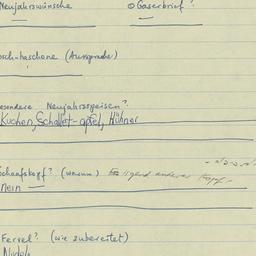 Neujahrswünsche Gaserbrief?
osch-haschone (Aussprache)
esondere Neujahrsspeisen?
Kuchen, Schalet-äpfel, Hühner
Schafskopf? (warum)
nein
Fervel? (wie zubereitet)
Nudeln